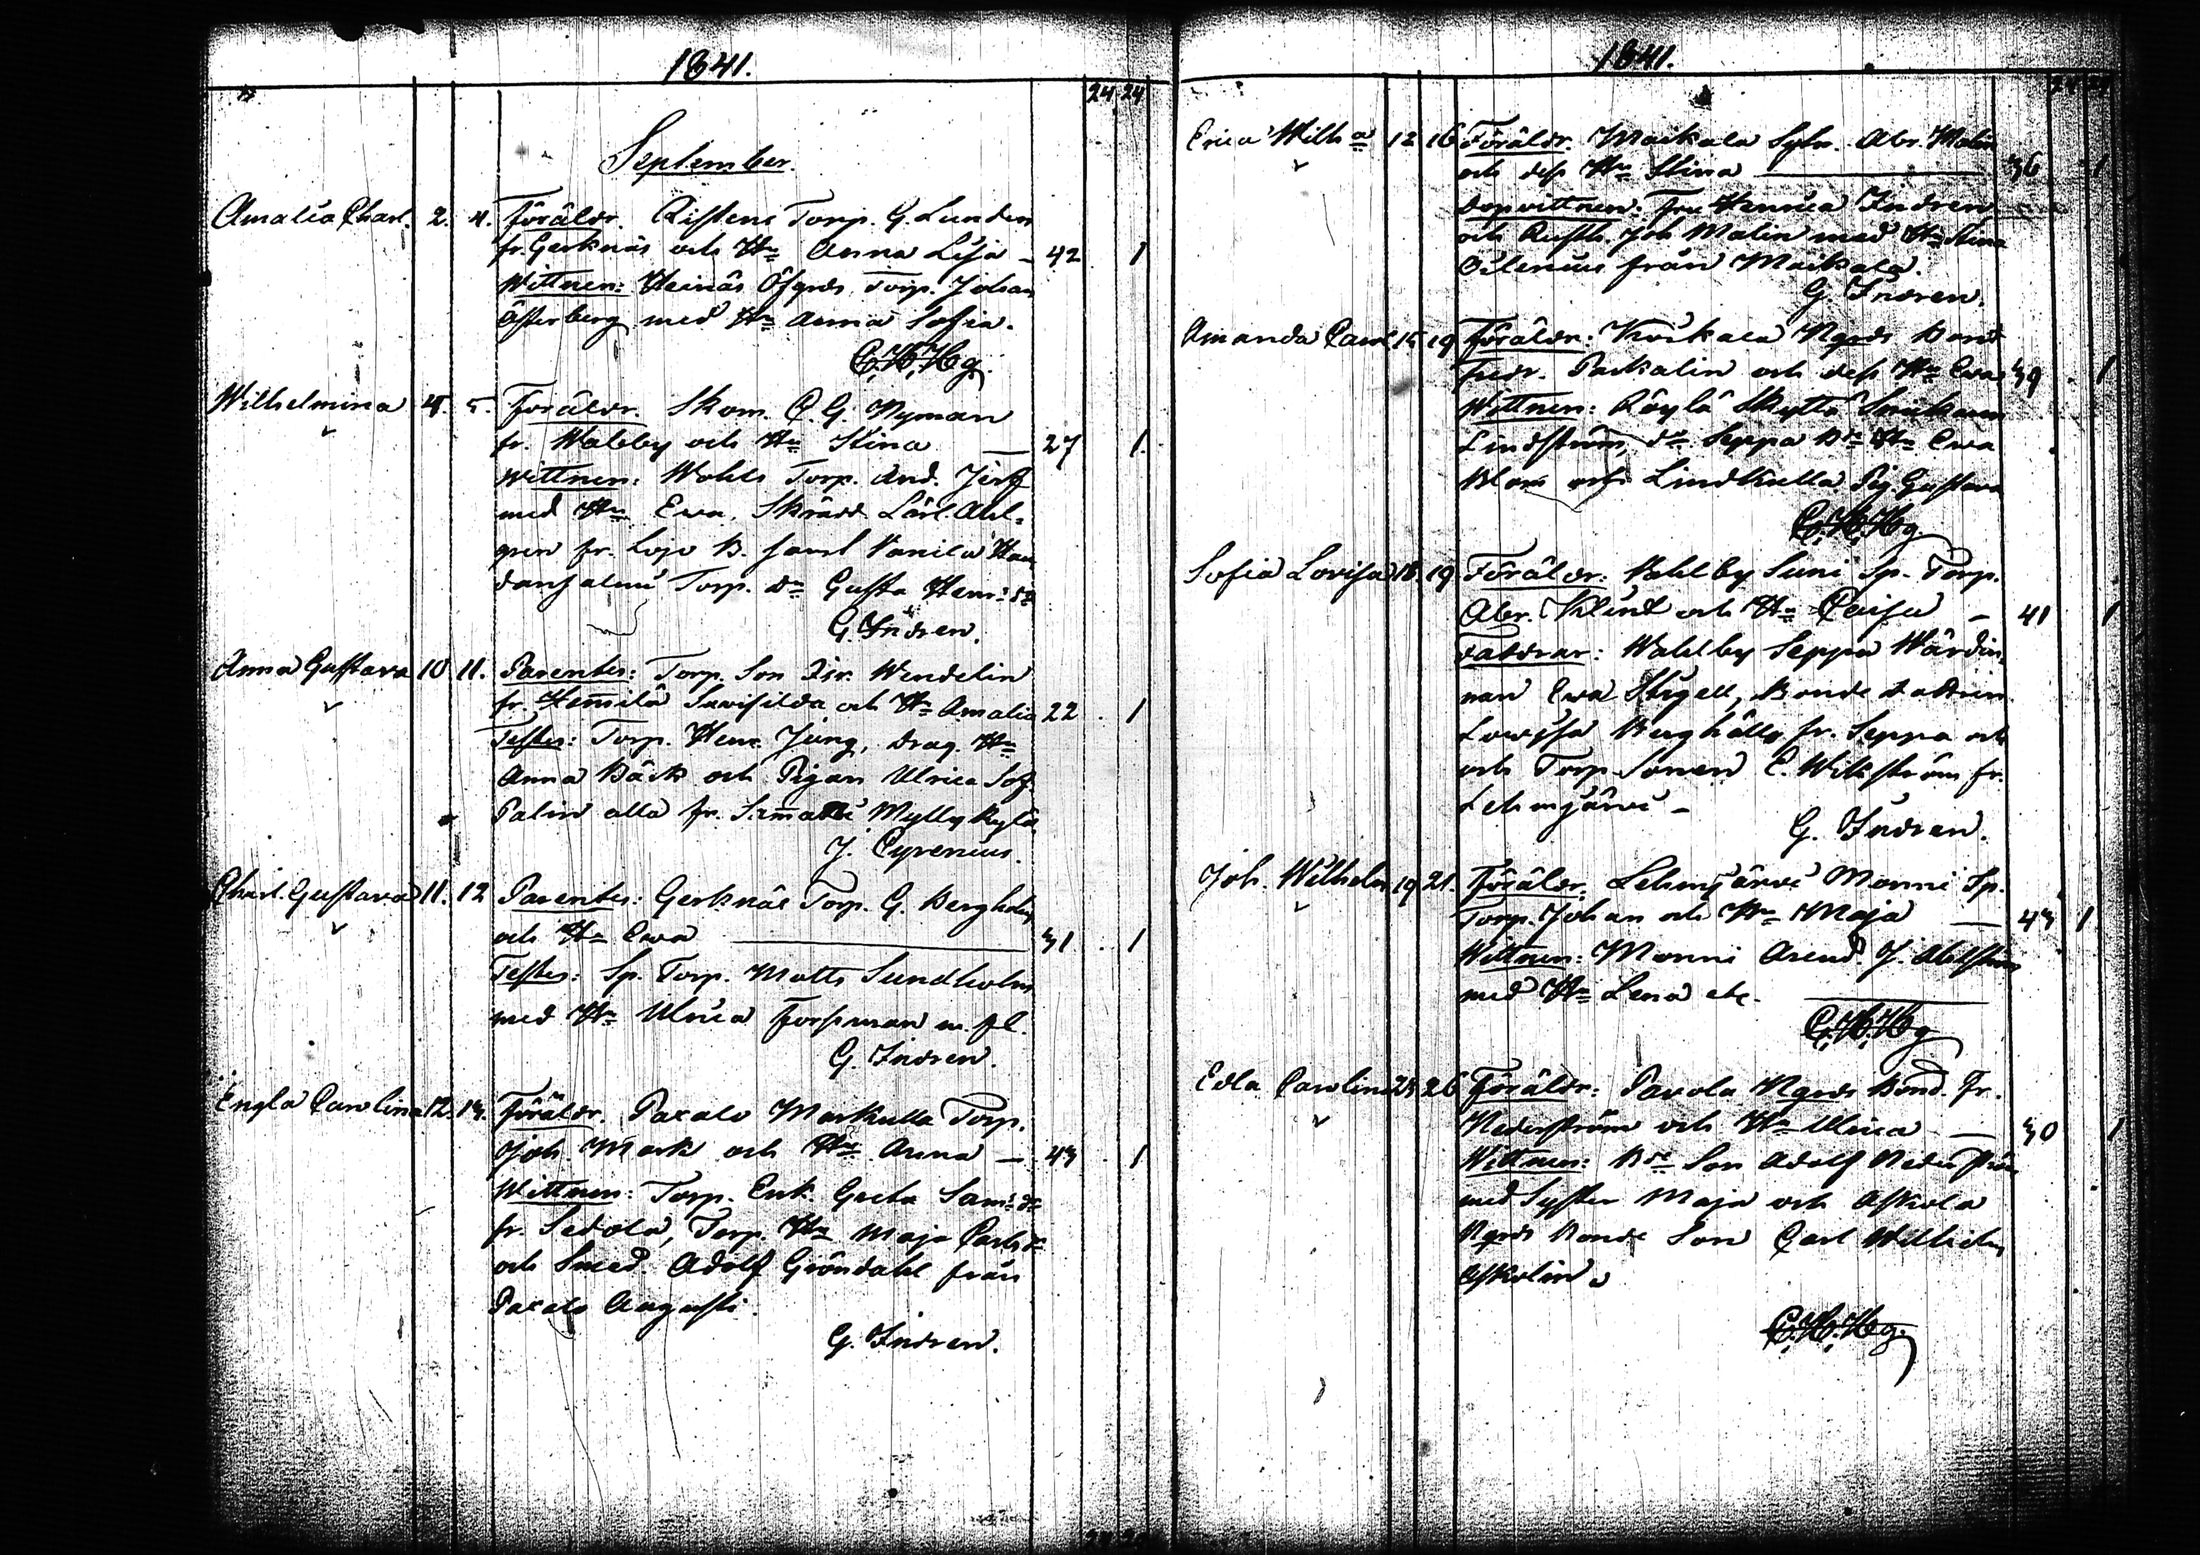 1841.
24 24
September.
Amalia Charl. 2. 4. Föräldr. Ristens Torp. G. Lunden
fr. Gerknäs och Hu Anna Lisa – 42 1
Wittnen: Heinäs Öfgrds Torp. Johan
Österberg med Hu Anna Sofia.
C. H. Hg.
Wilhelmina 4. 5. Föräldr. Skom. C. G. Nyman
fr. Wahlby och Hu Stina — 27 1.
Wittnen: Wohls Torp. And. Jerf
med Hu Ewa, Skrädd. Lärl. Ahl-
gren fr. Lojo B. samt Vanila
Torp. dr Gusta Henr: dr
G. Indren.
Anna Gustava 10 11. Parentes: Torp. Son Isr. Wendelin
fr. Hemilä och Hu Amalia 22 1
Testes: Torp. Henr. Jung, drag. Hu
Anna Bäck och Pigan Ulrica Sof.
Palin alla fr. Myllykylä
J. Cyrenius.
Charl. Gustava 11. 12 Parentes: Gerknäs Torp. G. Bergholm
och Hu Ewa — 31 1
Testes: Sp. Torp. Matts Sundholm
med Hu Ulrica Forsman m. fl.
G. Indren.
Engla Carolina 12. 13. Föräldr. Paxalo Markulla Torp.
Joh. Mark och Hu Anna — 43 1
Wittnen: Torp. Enk. Greta Sam: dr
fr. Sedola, Torp. Hu Maja Carls dr
och Smed. Adolf Gröndahl från
Paxalo Augusti.
G. Indren.
1841.
Erica Wilh a 12 16 Föräldr. Maikala Sytn. Abr. Malin
och dess Hu Stina — 36 1
Dopvittnen: Fru Henrica Indren,
och Rusth. Joh Malin med Hu Stina
Silenius från Maikala.
G. Indren.
Amanda Carol. 15 19 Föräldr: Kourkala Ngrds Bond
Fredr. Packalin och dess Hu Ewa 39 1
Wittnen: Röylä Skyttä Snickaren
Lindström, dr Seppä Bds Hu Ewa
Blom och Lindkulla Pig. Gustava
C. H. Hg.
Sofia Lovisa 18. 19 Föräldr: Wahlby Suni Sp. Torp.
Abr. Klint och Hu Caisa – 41 1
Faddrar: Wahlby Seppä Wärdin-
nan Ewa Stigell, Bonde dottren
Lovisa Berghäll fr. Seppä och
och Torp Sonen E. Wikström fr.
Lehmjärvi –
G. Indren.
Joh. Wilhelm 19 21. Föräldr. Lehmjärvi Monni Sp.
Torp. Johan och Hu Maja — 43 1
Wittnen: Monni Arend. J. Ahlström
med Hu Lena etc.
C. H. Hg
Edla Carolina 23 26 Föräldr: Pavola Ngrds Bond. Fr.
Nederström och Hu Ulrica — 30 1
Wittnen: Bde Son Adolf Nederström
med Syster Maja och Askola
Ngrds Bonde Son Carl Wilhelm
Askolin.
C. H. Hg.